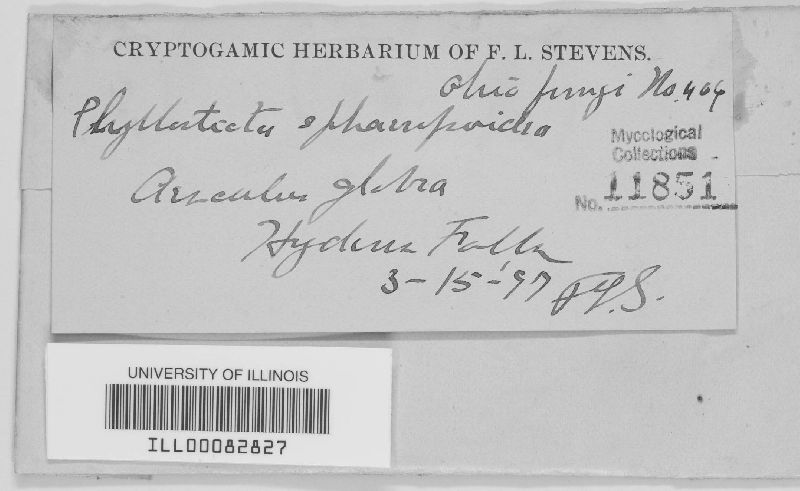 CRYPTOGAMIC HERBARIUM OF F. L. STEVENS.
Ohio fungi No. 404
Phyllosticta sphaeropoidea
Mycological
Collections
No. 11851
Aesculus glabra
Hydens Falls
3-15-'97 F.L.S.
UNIVERSITY OF ILLINOIS
ILL00082827